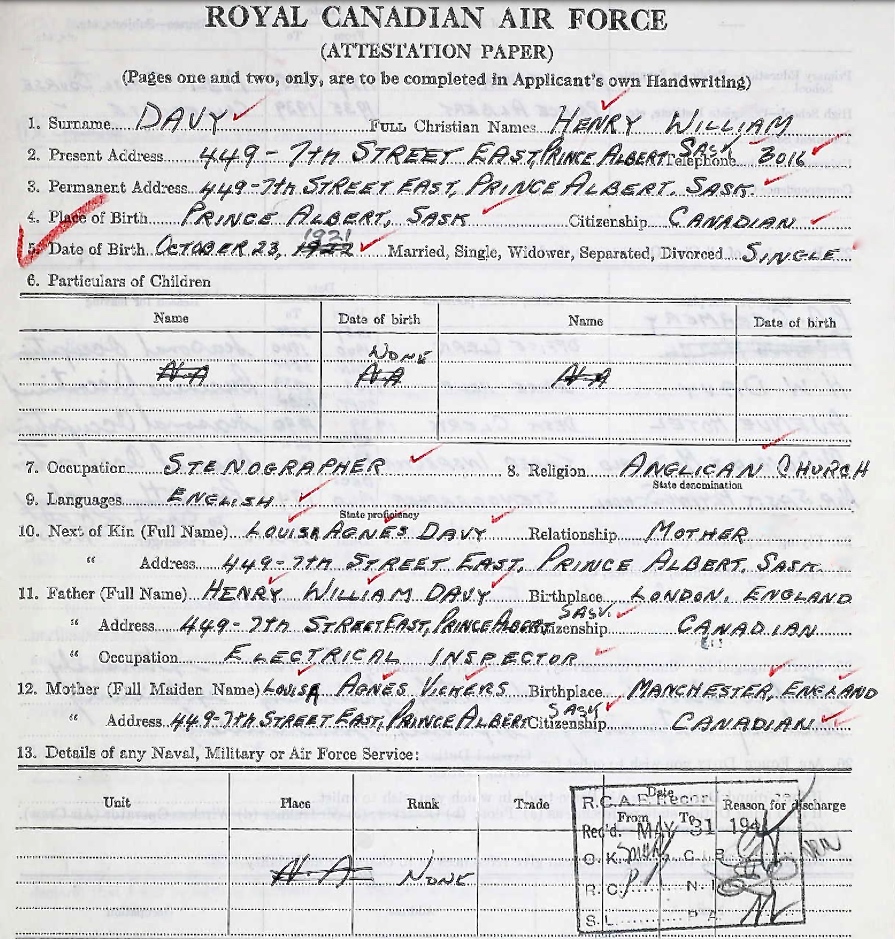 ROYAL CANADIAN AIR FORCE
(ATTESTATION PAPER)
(Pages one and two, only, are to be completed in Applicant's own Handwriting)
1. Surname DAVY FULL Christian Names HENRY WILLIAM
2. Present Address 449-7TH STREET EAST, PRINCE ALBERT SASK Telephone 3016
3. Permanent Address 449-7TH STREET EAST, PRINCE ALBERT. SASK.
4. Place of Birth PRINCE ALBERT, SASK Citizenship CANADIAN
5. Date of Birth OCTOBER 23, 1921 1922 Married, Single, Widower, Separated, Divorced SINGLE
6. Particulars of Children
Name Date of birth Name Date of birth
NONE
N A N A N A
7. Occupation STENOGRAPHER 8. Religion ANGLICAN CHURCH
State denomination
9. Languages ENGLISH
State proficiency
10. Next of Kin (Full Name) LOUISA AGNES DAVY Relationship MOTHER
" Address 449-7TH STREET EAST, PRINCE ALBERT, SASK.
11. Father (Full Name) HENRY WILLIAM DAVY Birthplace LONDON, ENGLAND
" Address 449-7TH STREET EAST, PRINCE ALBERT SASK. Citizenship CANADIAN
" Occupation ELECTRICAL INSPECTOR
12. Mother (Full Maiden Name) LOUISA AGNES VICKERS Birthplace MANCHESTER, ENGLAND
" Address 449-7TH STREET EAST, PRINCE ALBERT SASK Citizenship CANADIAN
13. Details of any Naval, Military or Air Force Service:
Unit Place Rank Trade Date From To Reason for discharge
N.A. NONE
R.C.A.F. Record
Rec'd. MAY 31 194
O.K. C.R.
R.C. N.I.
S.L. P.A.